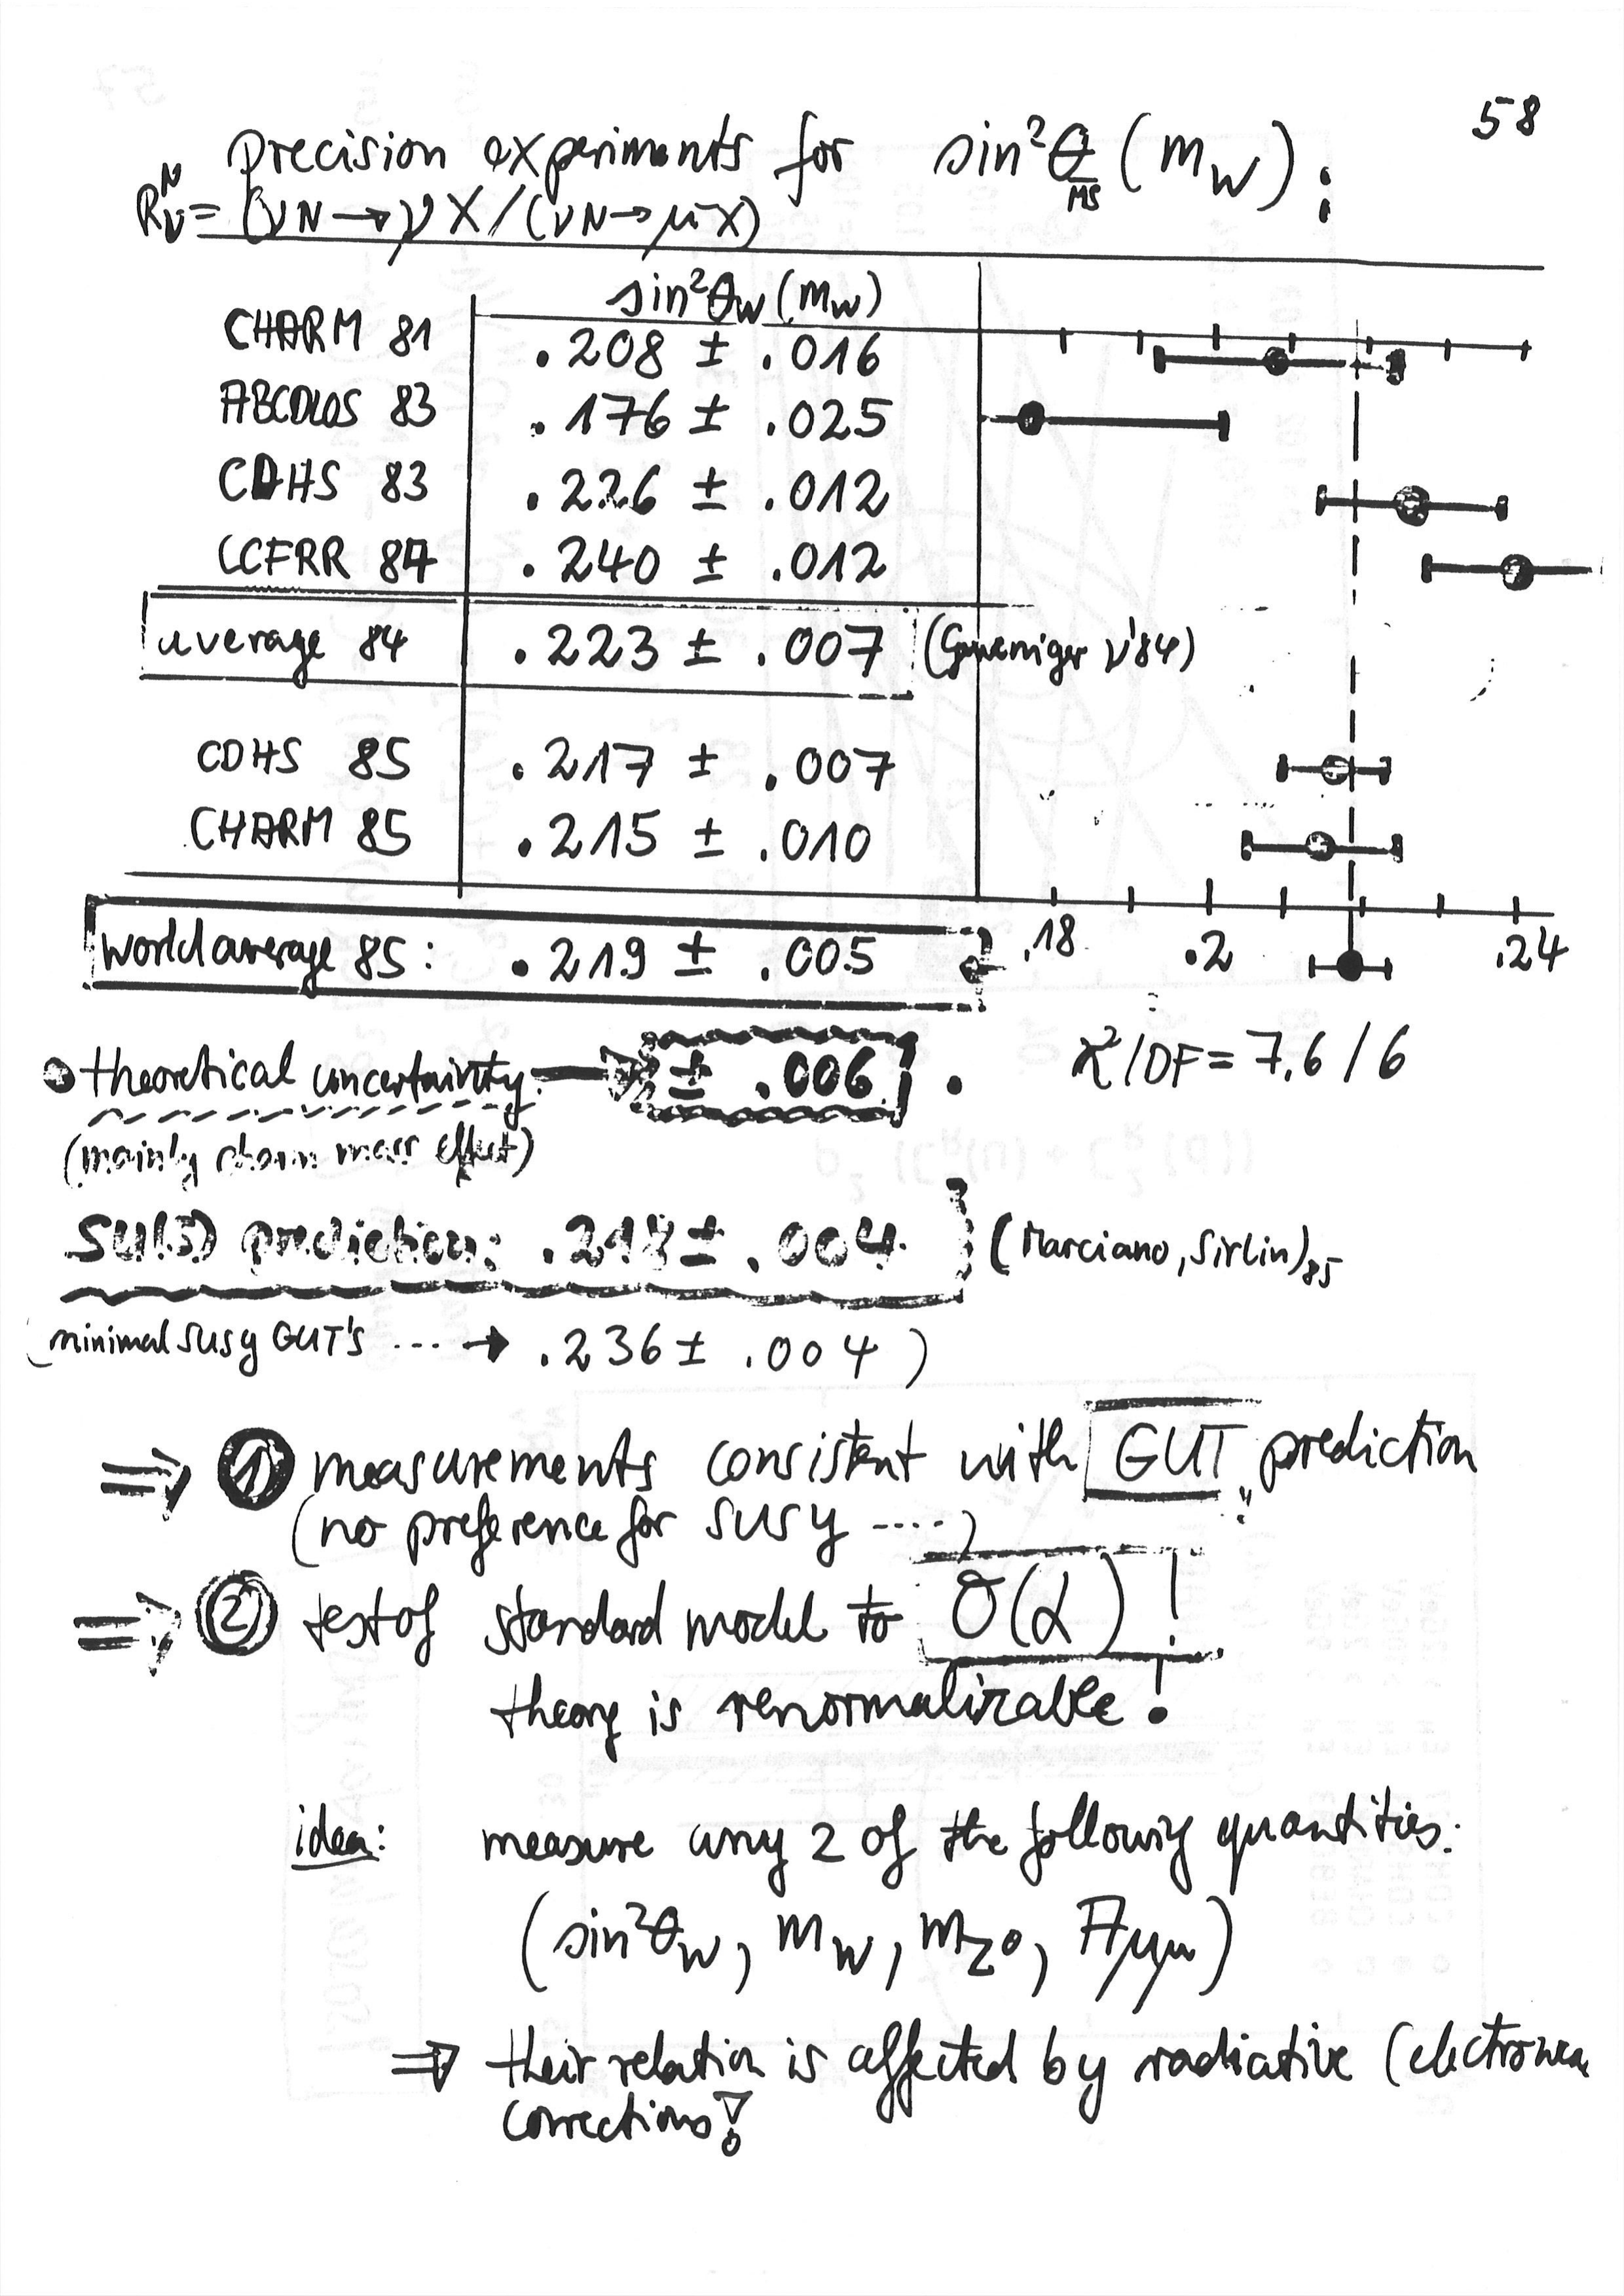 58
precision experiments for sin²θ_MS (m_W):
R_ν^N = (νN → νX / (νN → μ⁻X)
sin²θ_W (m_W)
CHARM 81 .208 ± .016
ABCDLOS 83 .176 ± .025
CDHS 83 .226 ± .012
CCFRR 84 .240 ± .012
average 84 .223 ± .007 (Geweniger ν'84)
CDHS 85 .217 ± .007
CHARM 85 .215 ± .010
.18 .2 .24
world average 85: .219 ± .005
• theoretical uncertainty → ± .006 . χ²/DF = 7.6 / 6
(mainly charm mass effect)
SU(5) prediction: .218 ± .004 (Marciano, Sirlin)85
(minimal SUSY GUT's .... → .236 ± .004)
⇒ ① measurements consistent with GUT prediction
(no preference for SUSY ....)
⇒ ② test of standard model to O(α)!
theory is renormalizable!
idea: measure any 2 of the following quantities:
(sin²θ_W, m_W, m_Z0, A_μμ)
⇒ their relation is affected by radiative (electrowea
corrections!